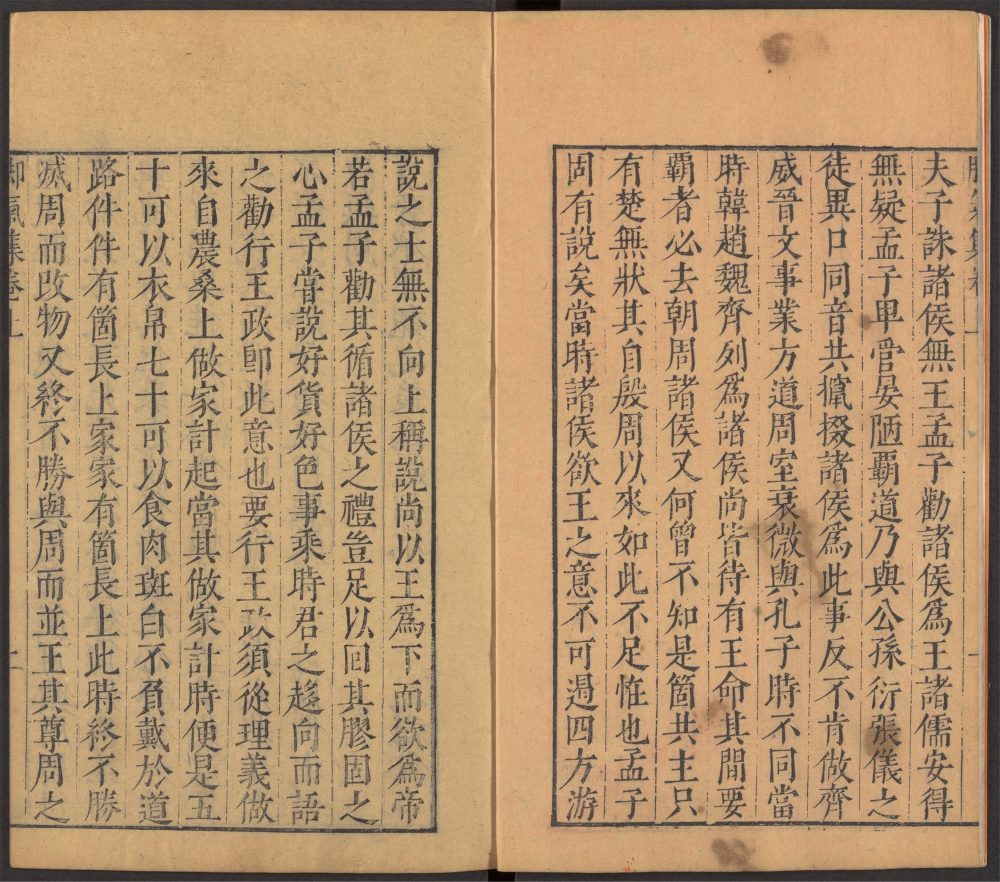 夫子誅諸侯無王孟子勸諸侯爲王諸儒安得
無疑孟子卑管晏陋覇道乃與公孫衍張儀之
徒異口同音共攛掇諸侯爲此事反不肯做齊
威晉文事業方道周室衰微與孔子時不同當
時韓趙魏齊列爲諸侯尚皆待有王命其間要
覇者必去朝周諸侯又何曾不知是箇共主只
有楚無狀其自殷周以來如此不足恠也孟子
固有說矣當時諸侯欲王之意不可遏四方游
說之士無不向上稱說尚以王爲下而欲爲帝
若孟子勸其循諸侯之禮豈足以回其膠固之
心孟子嘗說好貨好色事乘時君之趍向而語
之勸行王政卽此意也要行王政須從理義做
來自農桑上做家計起當其做家計時便是五
十可以衣帛七十可以食肉斑白不負戴於道
路件件有箇長上家家有箇長上此時終不勝
烕周而改物又終不勝與周而並王其尊周之
脚氣集卷上 二